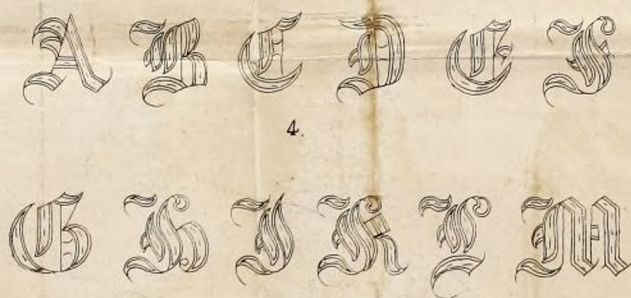 A B C D E F
4.
G H I K L M